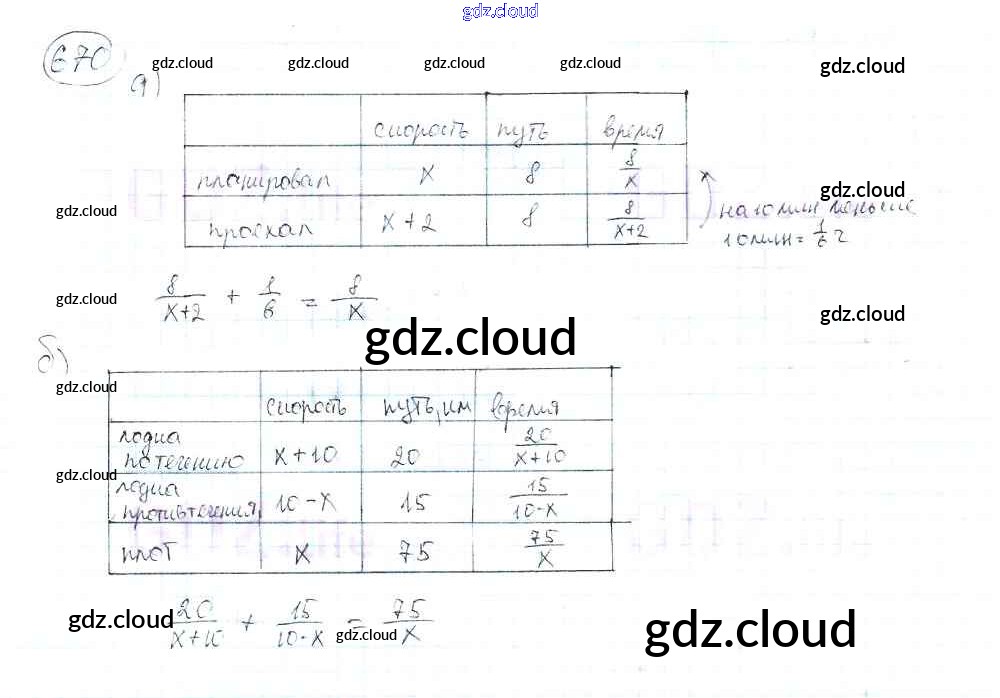 gdz.cloud
670
gdz.cloud gdz.cloud gdz.cloud gdz.cloud gdz.cloud
а)
скорость путь время
планировал x 8 8/x
gdz.cloud
gdz.cloud
проехал x+2 8 8/(x+2)
на 10 мин меньше
10 мин = 1/6 ч
gdz.cloud
8/(x+2) + 1/6 = 8/x
gdz.cloud
gdz.cloud
б)
gdz.cloud
скорость путь, км время
лодка
по течению x+10 20 20/(x+10)
gdz.cloud
лодка
против течения 10-x 15 15/(10-x)
плот x 75 75/x
gdz.cloud
20/(x+10) + 15/(10-x) = 75/x
gdz.cloud
gdz.cloud